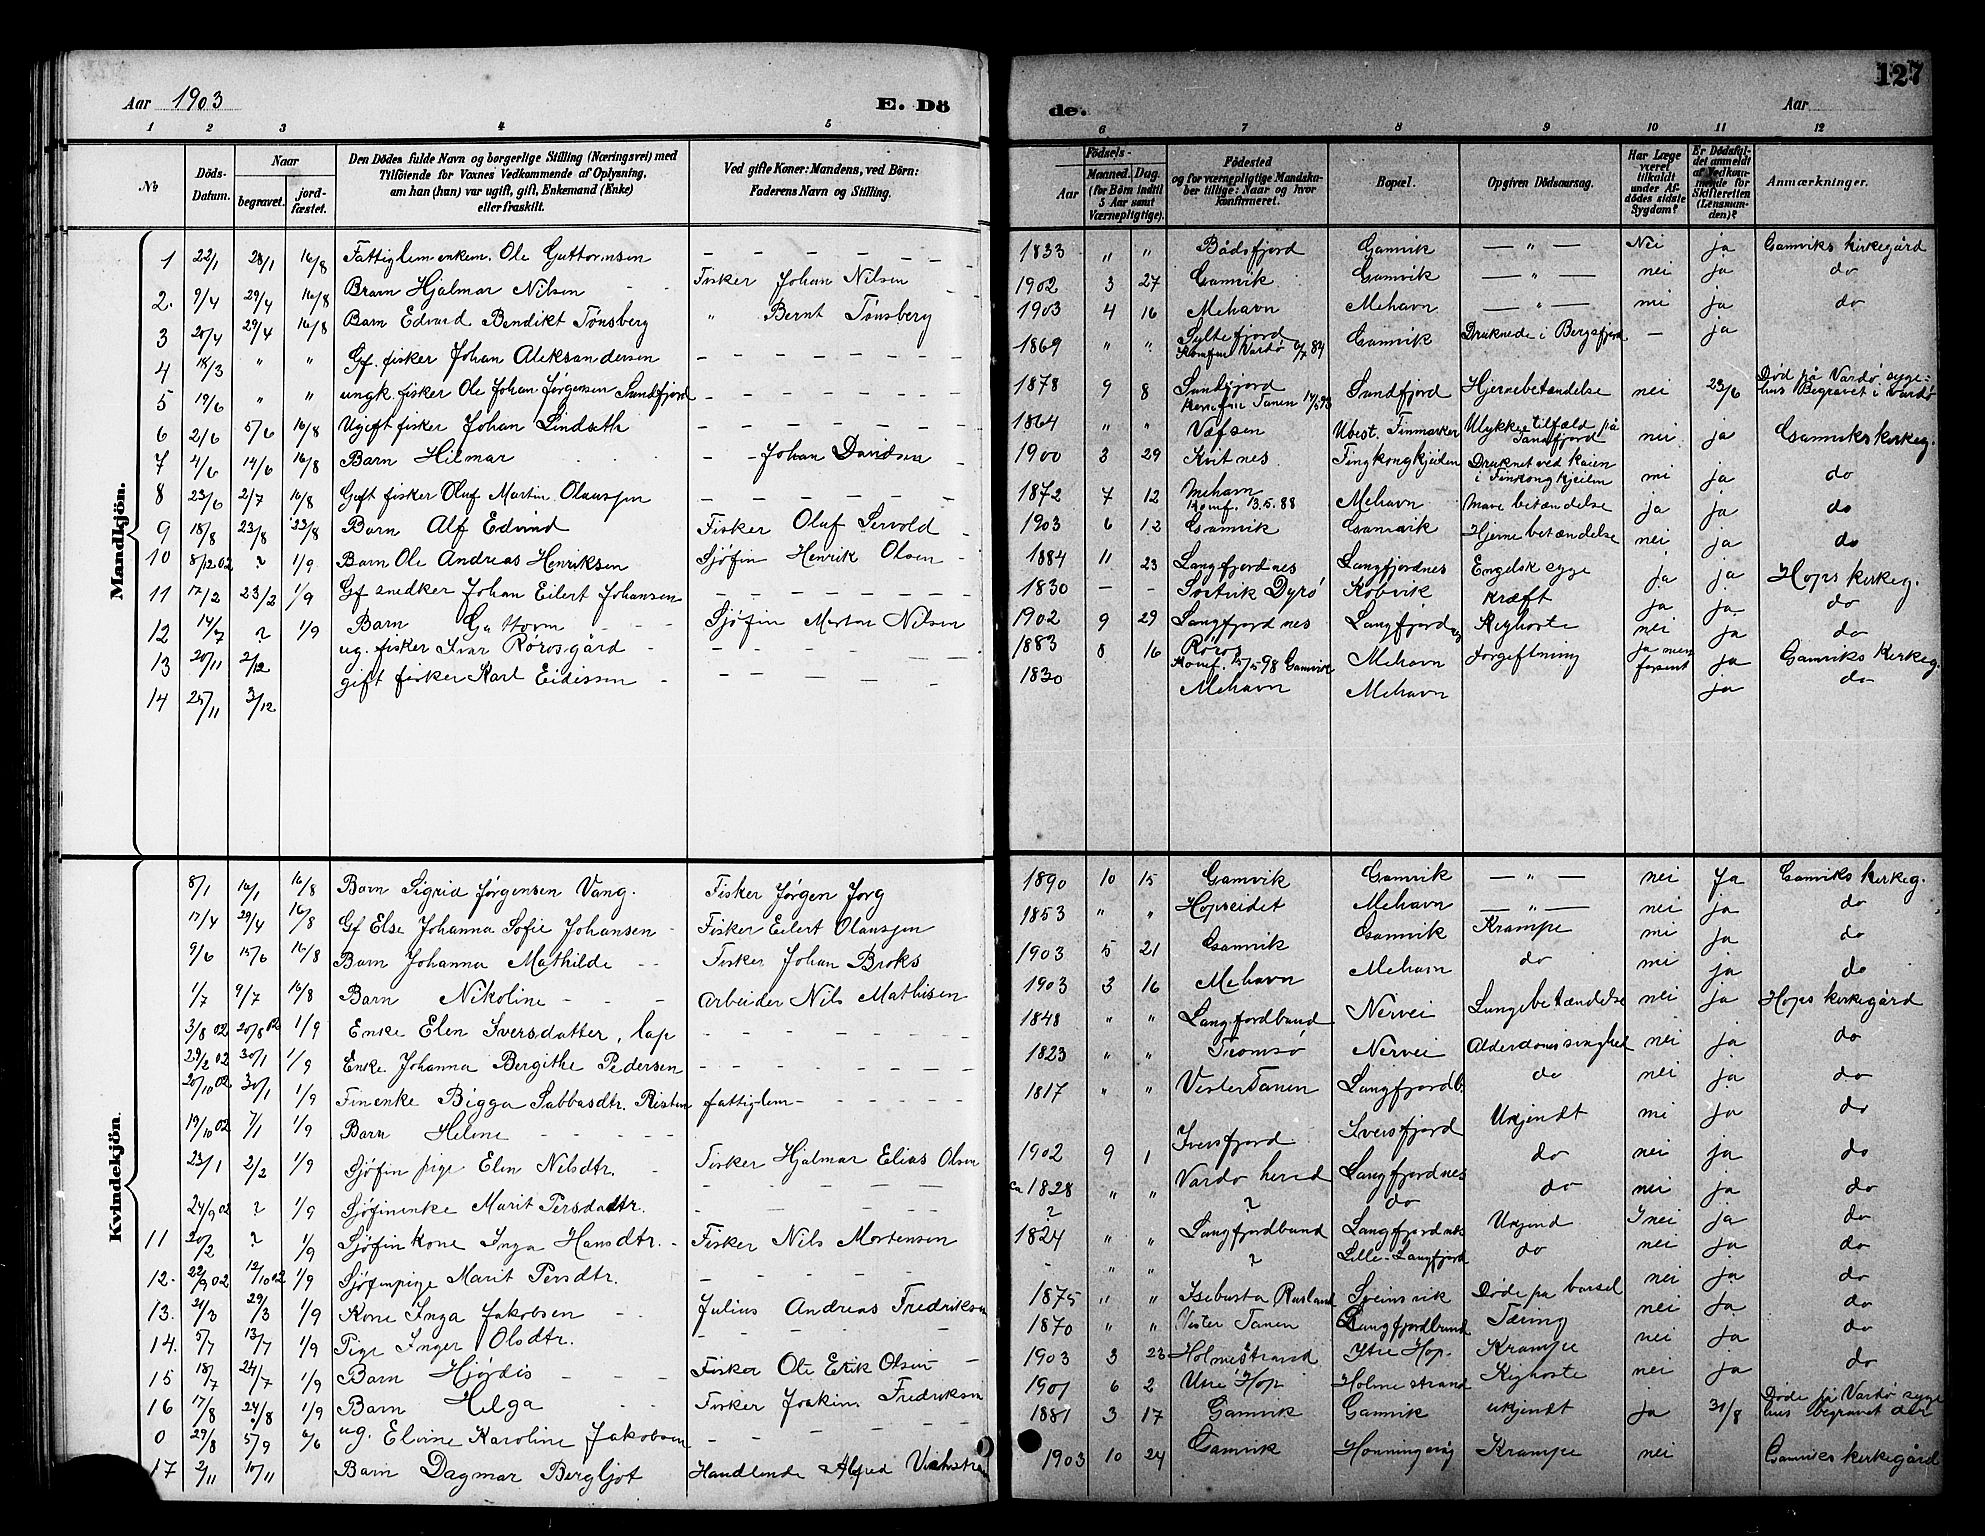 127
Aar 1903 E. Dö de. Aar
1 2 3 4 5 6 7 8 9 10 11 12
No. Döds-Datum. Naar begravet. jordfæstet. Den Dödes fulde Navn og borgerlige Stilling (Næringsvei) med Tilföiende for Voxnes Vedkommende af Oplysning, am han (hun) var ugift, gift, Enkemand (Enke) eller fraskilt. Ved gifte Koner: Mandens, ved Börn: Faderens Navn og Stilling. Födsels- Aar Maaned. Dag. (for Börn indtil 5 Aar samt Værnepligtige). Födested og for værnepligtige Mandskaber tillige: Naar og hvor konfirmeret. Bopæl. Opgiven Dödsaarsag. Har Læge været tilkaldt under Afdödes sidste Sygdom? Er Dödsfaldet anmeldt af Vedkommende for Skifteretten (Lensmanden)? Anmærkninger.
Mandkjön.
1 22/1 28/1 16/8 Fattiglem enkem. Ole Guttormsen - - - 1833 " " Bådsfjord Gamvik — " — Nei ja Gamviks kirkegård
2. 9/4 29/4 16/8 Barn Hjalmar Nilsen Fisker Johan Nilsen 1902 3 27 Gamvik Gamvik — " — nei ja do
3 20/4 29/4 16/8 Barn Edvard Bendikt Tønsberg " Bernt Tønsberg 1903 4 16 Mehavn Mehavn — " — nei ja do
4 18/3 " " Gf. fisker Johan Aleksandersen - - - 1869 " " Syltefjord Konfir Vardø 6/7 84 Gamvik Druknede i Bergsfjord — ja
5 19/6 " " ungk. fisker Ole Johan Jørgensen Sandfjord - - - 1878 9 8 Sandfjord Konfir Tanen Sandfjord Hjernebetændelse nei 23/6 Død på Vardø sygehus Begravet i Vardø
6 2/6 5/6 16/8 Ugift fisker Johan Lindseth - - - 1864 " " Vefsen Ubest. Finmarken Ulykkestilfæld på Sandfjord nei ja Gamviks kirkeg.
7 4/6 14/6 16/8 Barn Hilmar - - Johan Davidsen 1900 3 29 Kvitnes Finkongkjeilen Druknet ved kaien i Finkongkjeilen nei ja do
8 23/6 2/7 16/8 Gift fisker Oluf Martin Olaussen - - - 1872 7 12 Mehavn Konf. 13.5.88 Mehavn Mave betændelse ja ja do
9 18/8 23/8 23/8 Barn Alf Edvind Fisker Oluf Servold 1903 6 12 Gamvik Gamvik Hjernebetændelse nei ja do
10 8/12 02 ? 1/9 Barn Ole Andreas Henriksen Sjøfin Henrik Olsen 1884 11 23 Langfjordnes Langfjordnes Engelsk syge ja ja Hops kirkeg.
11 17/2 23/2 1/9 Gf snedker Johan Eilert Johansen - - - 1830 - - Sørtvik Dyrø Kobvik Kræft ja ja do
12 14/7 ? 1/9 Barn Guttorm Sjøfin Morten Nilsen 1902 9 29 Langfjordnes Langfjordnes Kighoste nei ja do
13 20/11 2/12 ug. fisker Ivar Rørosgård - - - 1883 8 16 Røros Konf. 15/5 98 Gamvik Mehavn Forgiftning ja men forsent ja Gamviks kirkeg.
14 25/11 3/12 gift fisker Karl Eidissen - - - 1830 Mehavn Mehavn ja do
Kvindekjön.
8/1 16/1 16/8 Barn Sigrid Jørgensen Vang. Fisker Jørgen Jorg 1890 10 15 Gamvik Gamvik — " — nei ja Gamviks kirkeg.
17/4 29/4 16/8 Gf Else Johanna Sofie Johansen Fisker Eilert Olaussen 1853 " " Hopseidet Mehavn — " — nei ja do
9/6 15/6 16/8 Barn Johanna Mathilde Fisker Johan Broks 1903 5 21 Gamvik Gamvik Krampe nei ja do
1/7 9/7 16/8 Barn Nikoline Arbeider Nils Mathisen 1903 3 16 Mehavn Mehavn do nei ja do
3/8 02 20/8 02 1/9 Enke Elen Iversdatter, lap - - - 1848 " " Langfjordbund Nervei Lungebetændelse nei ja Hops kirkegård
29/2 02 30/1 1/9 Enke Johanna Bergithe Pedersen - - - 1823 " " Tromsø Nervei Alderdomssinghed nei ja do
20/10 02 30/1 1/9 Finenke Bigga Sabbasdtr. Risten fattiglem - - - 1817 " " VesterTanen Langfjordb. do nei ja do
19/10 02 7/1 1/9 Barn Helene Fisker Hjalmar Elias Olsen 1902 9 1 Iversfjord Iversfjord Ukjendt nei ja do
23/1 2/2 1/9 Sjøfin pige Elen Nilsdtr. - - - ca 1828 " " Vardø herred Langfjordnes do nei ja do
24/9 02 ? 1/9 Sjøfinenke Marit Persdadtr. - - - ? ? do do nei ja do
11 20/2 ? 1/9 Sjøfin kone Inga Hansdtr. Fisker Nils Mortensen 1824 " " Langfjordbund Langfjordnes Ukjend nei ja do
12. 22/9 02 12/10 02 1/9 Sjøfinpige Marit Persdtr. - - - - " " ? Lille-Langfjord do nei ja do
13. 21/3 29/3 1/9 Kone Inga Jakobsen Julius Andreas Fredriksen 1875 " " Isebusta Rusland Sveinsvik Døde på barsel nei ja do
14. 5/7 13/7 1/9 Pige Inger Olsdtr. - - - 1870 " " Vester Tanen Langfjordbund Tæring nei ja do
15 18/7 24/7 1/9 Barn Hjørdis Fisker Ole Erik Olsen 1903 3 23 Holmestrand Ytre Hop. Krampe nei ja do
16 17/8 24/8 1/9 Barn Helga Fisker Joakim Fredriksen 1901 6 2 Utre Hop Holmestrand Kighoste nei ja do
0 29/8 5/9 6/6 ug. Elvine Karoline Jakobsen - - - 1881 3 17 Gamvik Gamvik ukjendt ja 31/8 Døde på Vardø sygehus begravet der
17 2/11 10/11 Barn Dagmar Bergljot Handlende Alfred 1903 10 24 Gamvik Honningsvåg Krampe nei Gamviks kirkegård